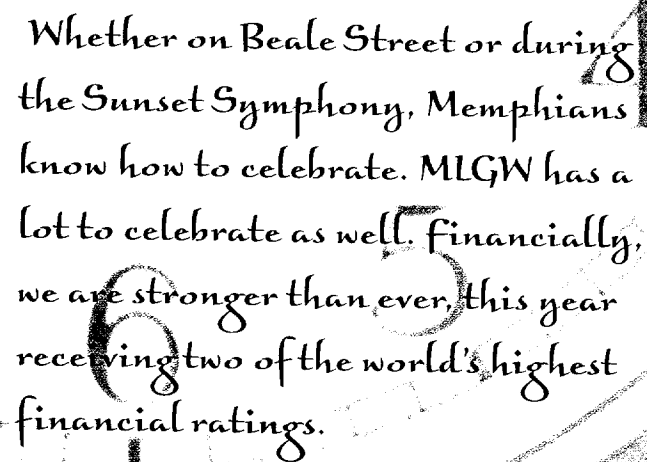 Whether on Beale Street or during
the Sunset Symphony, Memphians
know how to celebrate. MLGW has a
lot to celebrate as well. Financially,
we are stronger than ever, this year
receiving two of the world's highest
financial ratings.